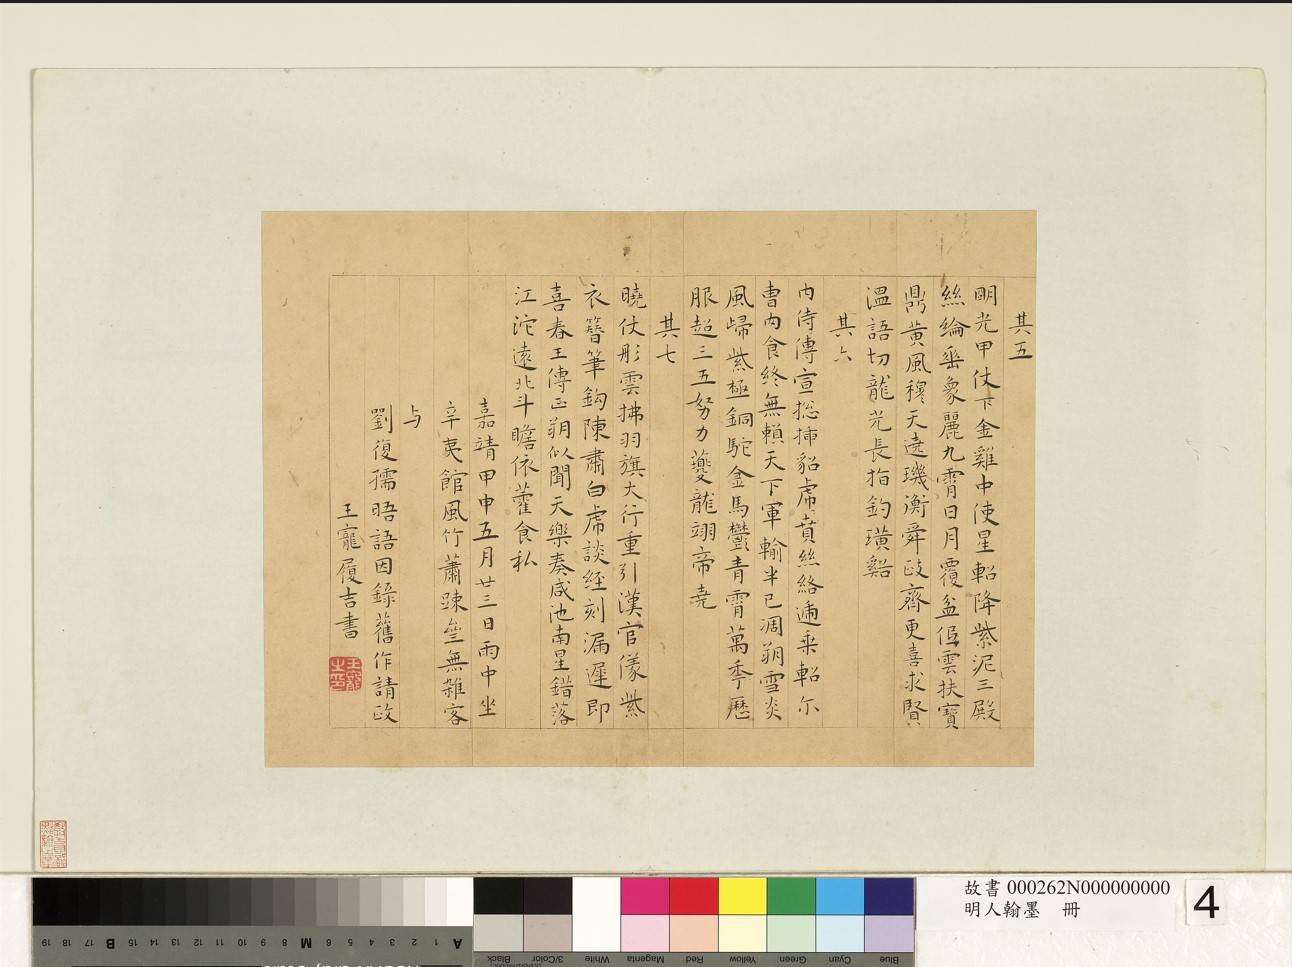 其五
明光甲仗下金雞中使星軺降紫泥三殿
絲綸垂象麗九霄日月覆盆低雲扶寶
鼎黃風穆天遶璣衡舜政齊更喜求賢
溫語切龍光長指釣璜谿
其六
內侍傳宣捴揷貂虎賁絲絡逓乗軺尓
曹內食終無賴天下軍輸半已凋朔雪炎
風歸紫極銅駝金馬鬱青霄萬季曆
服超三五努力夔龍翊帝堯
其七
曉仗彤雲拂羽旗大行重引漢官儀紫
衣簪筆鈎陳肅白虎談經刻漏遲即
喜春王傳正朔似聞天樂奏咸池南星錯落
江沱遠北斗瞻依藿食私
嘉靖甲申五月廿三日雨中坐
辛夷館風竹蕭踈無雜客
与
劉復孺晤語因錄舊作請政
王寵履吉書
王寵之印
故書 000262N000000000
明人翰墨 冊
4
19 18 17 B 15 14 13 12 11 10 9 8 M 6 5 4 3 2 1 A
Black 3/Color White Magenta Red Yellow Green Cyan Blue